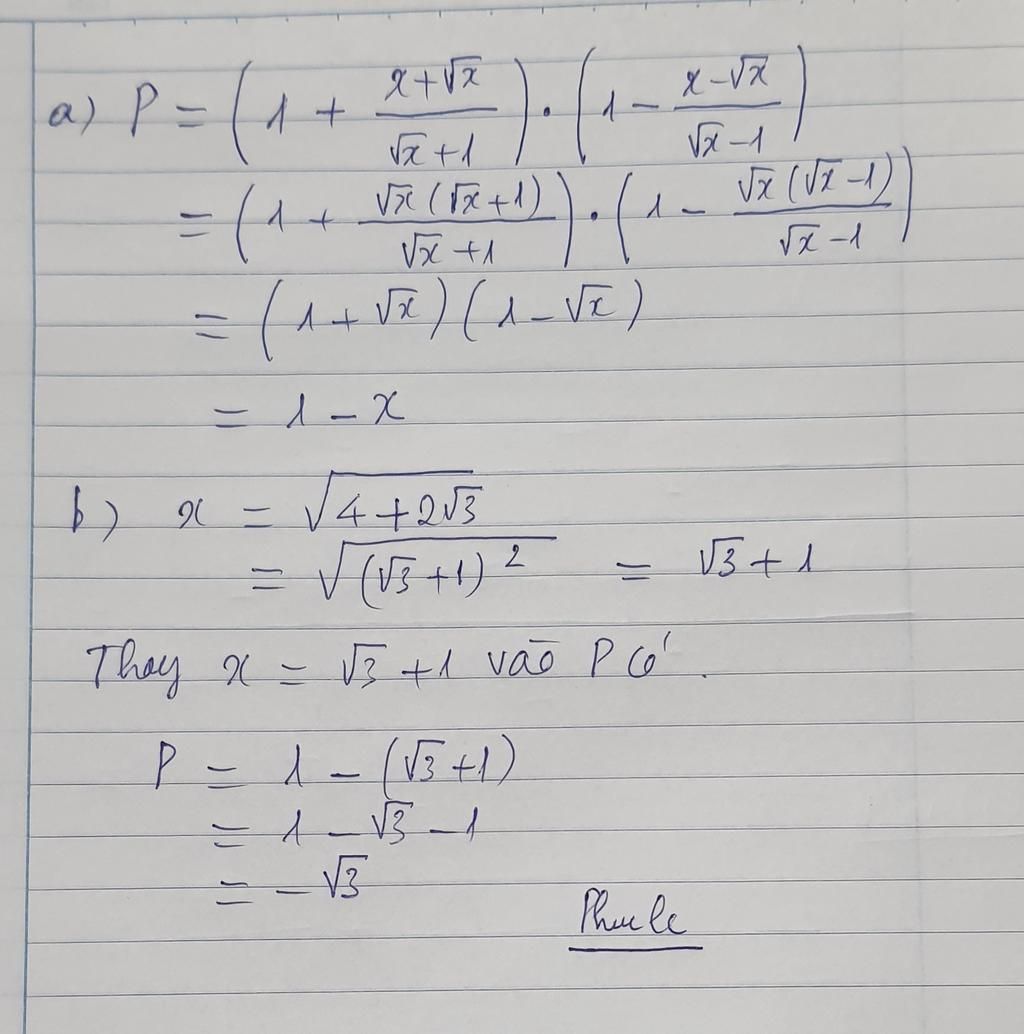 a) P = (1 + (x+√x)/(√x+1)) · (1 − (x−√x)/(√x−1))
= (1 + √x(√x+1)/(√x+1)) · (1 − √x(√x−1)/(√x−1))
= (1+√x)(1−√x)
= 1 − x
b) x = √(4+2√3)
= √((√3+1)²) = √3 + 1
Thay x = √3 + 1 vào P có.
P = 1 − (√3+1)
= 1 − √3 − 1
= − √3